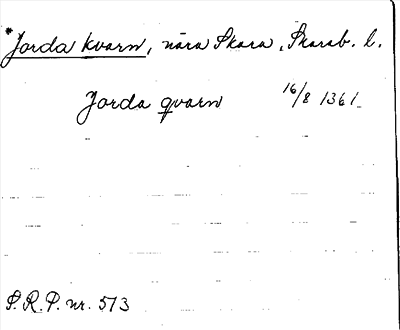 *Jorda kvarn, nära Skara, Skarab. l.
Jorda qvarn 16/8 1361.
S.R.P. nr. 573